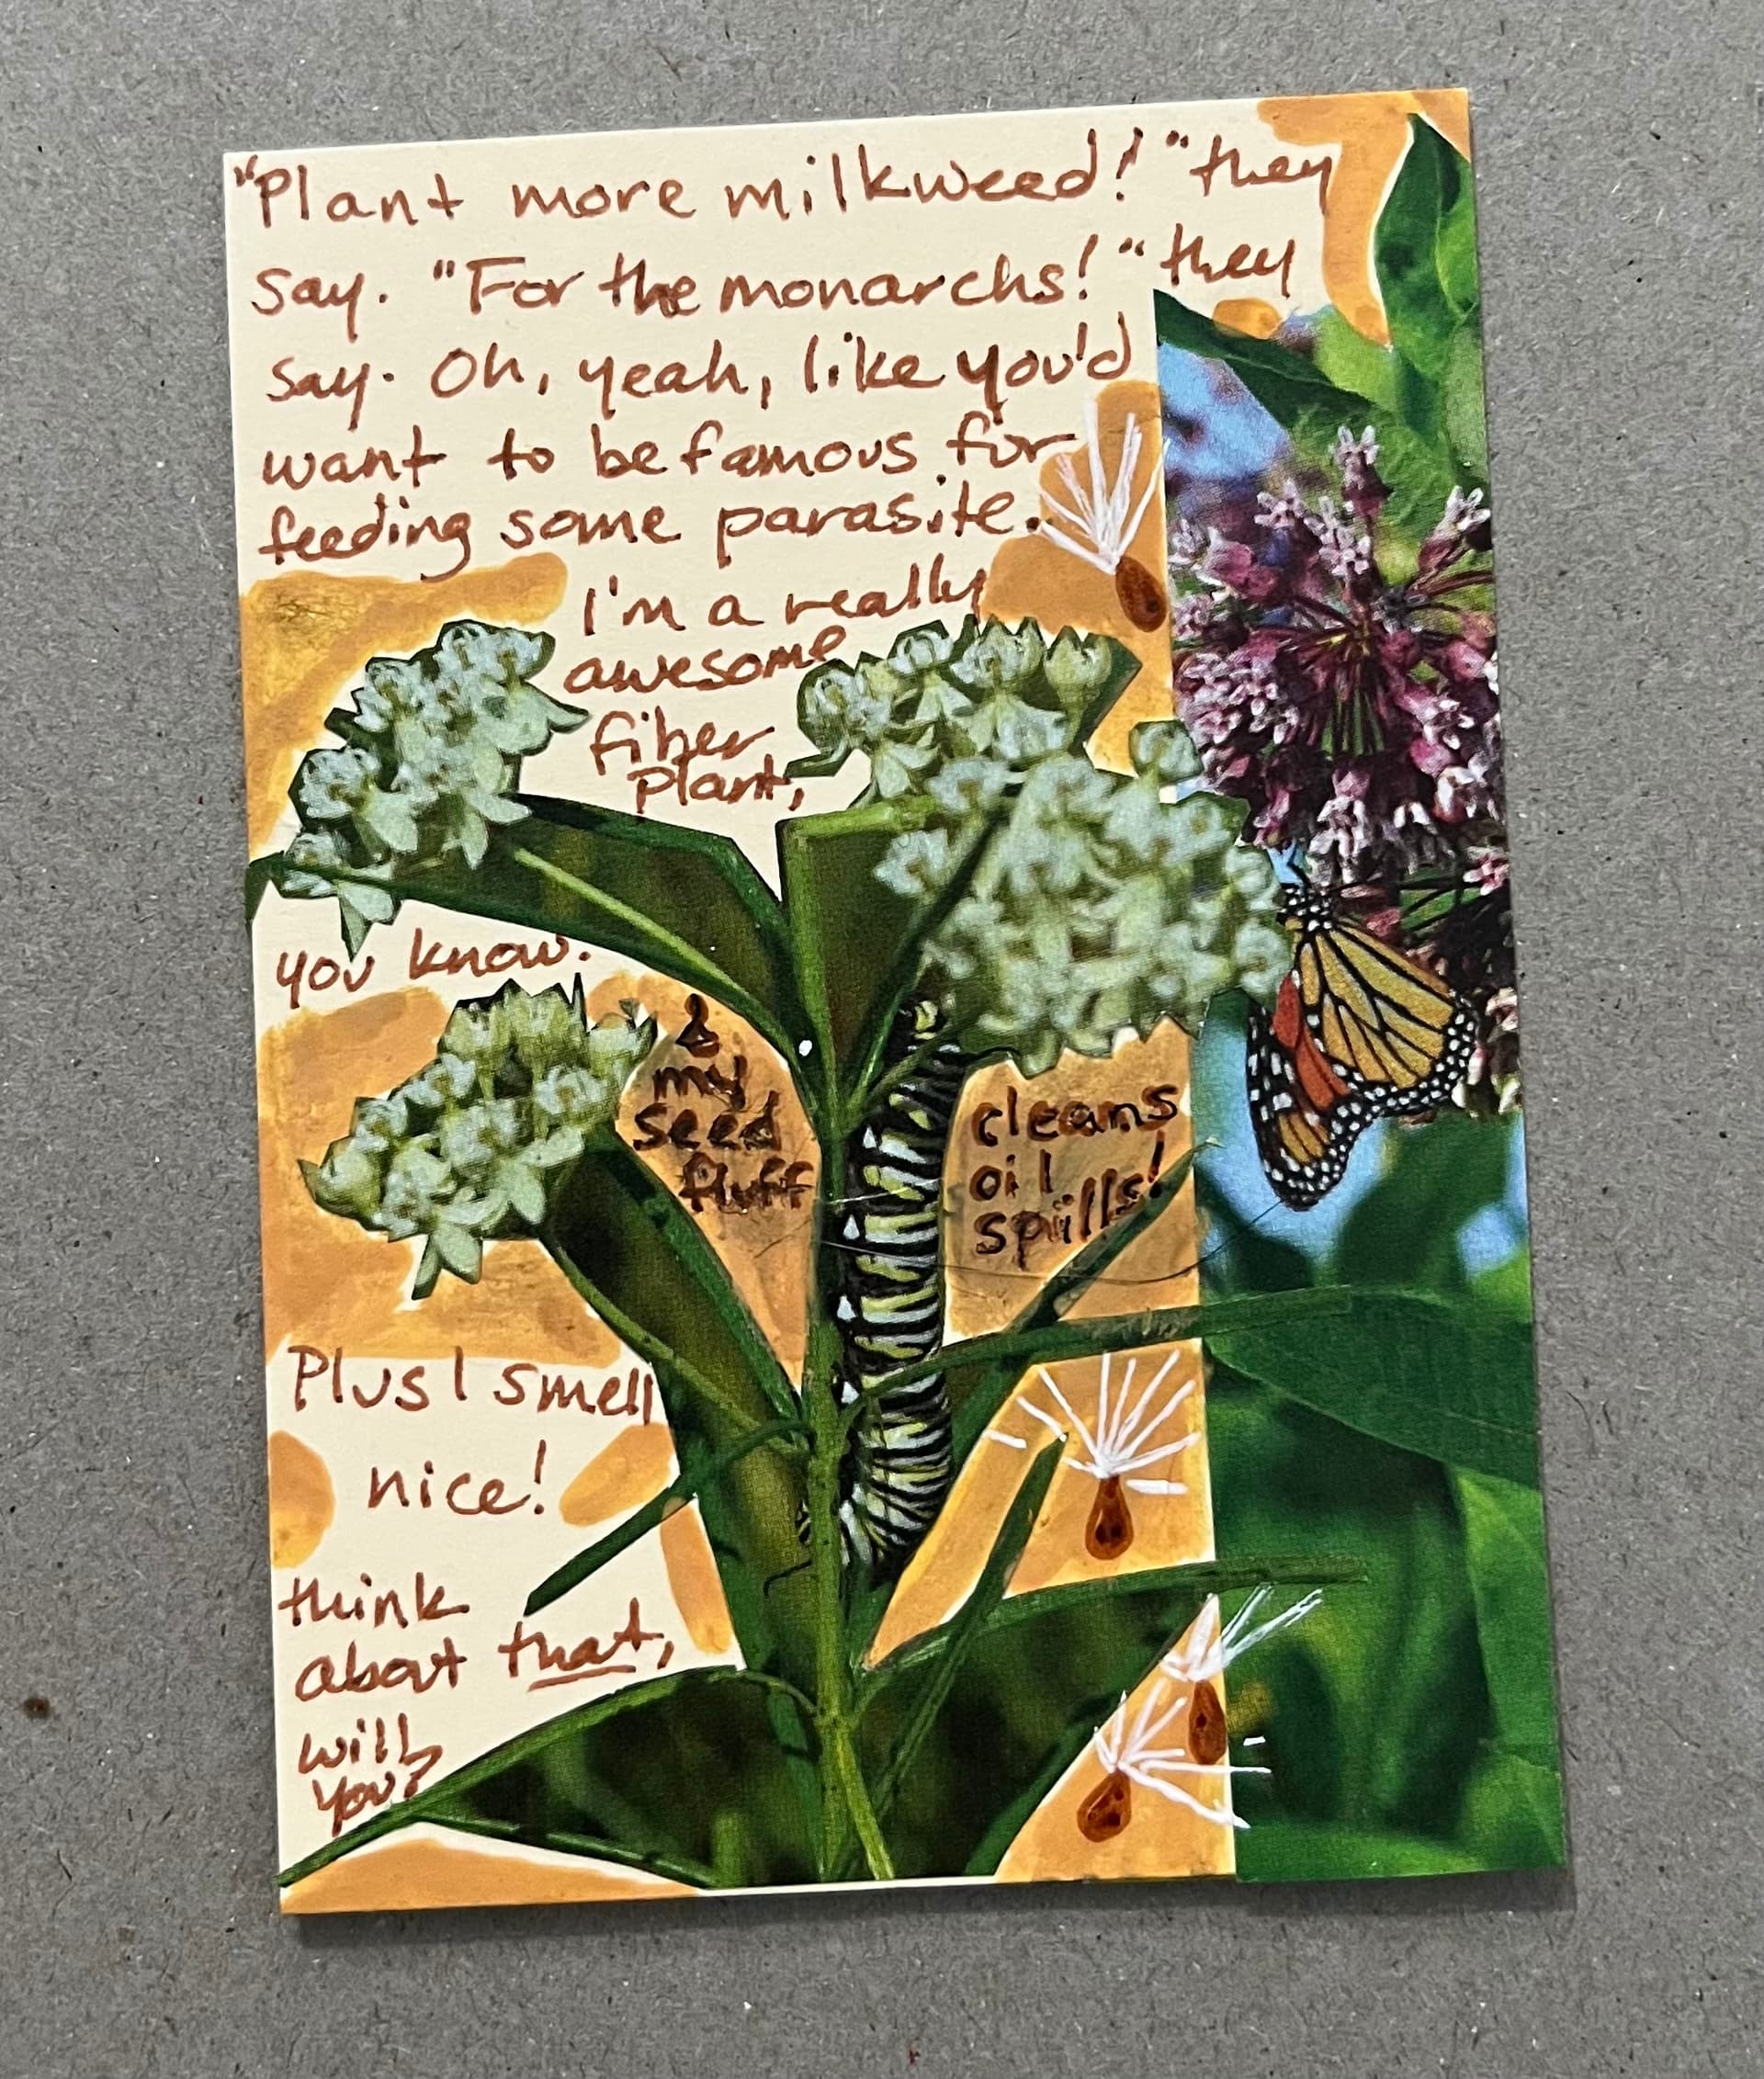 "Plant more milkweed!" they
say. "For the monarchs!" they
say. Oh, yeah, like you'd
want to be famous for
feeding some parasite.
I'm a really
awesome
fiber
plant,
you know.
&
my
seed
fluff
cleans
oil
spills!
Plus I smell
nice!
think
about that,
will
you?